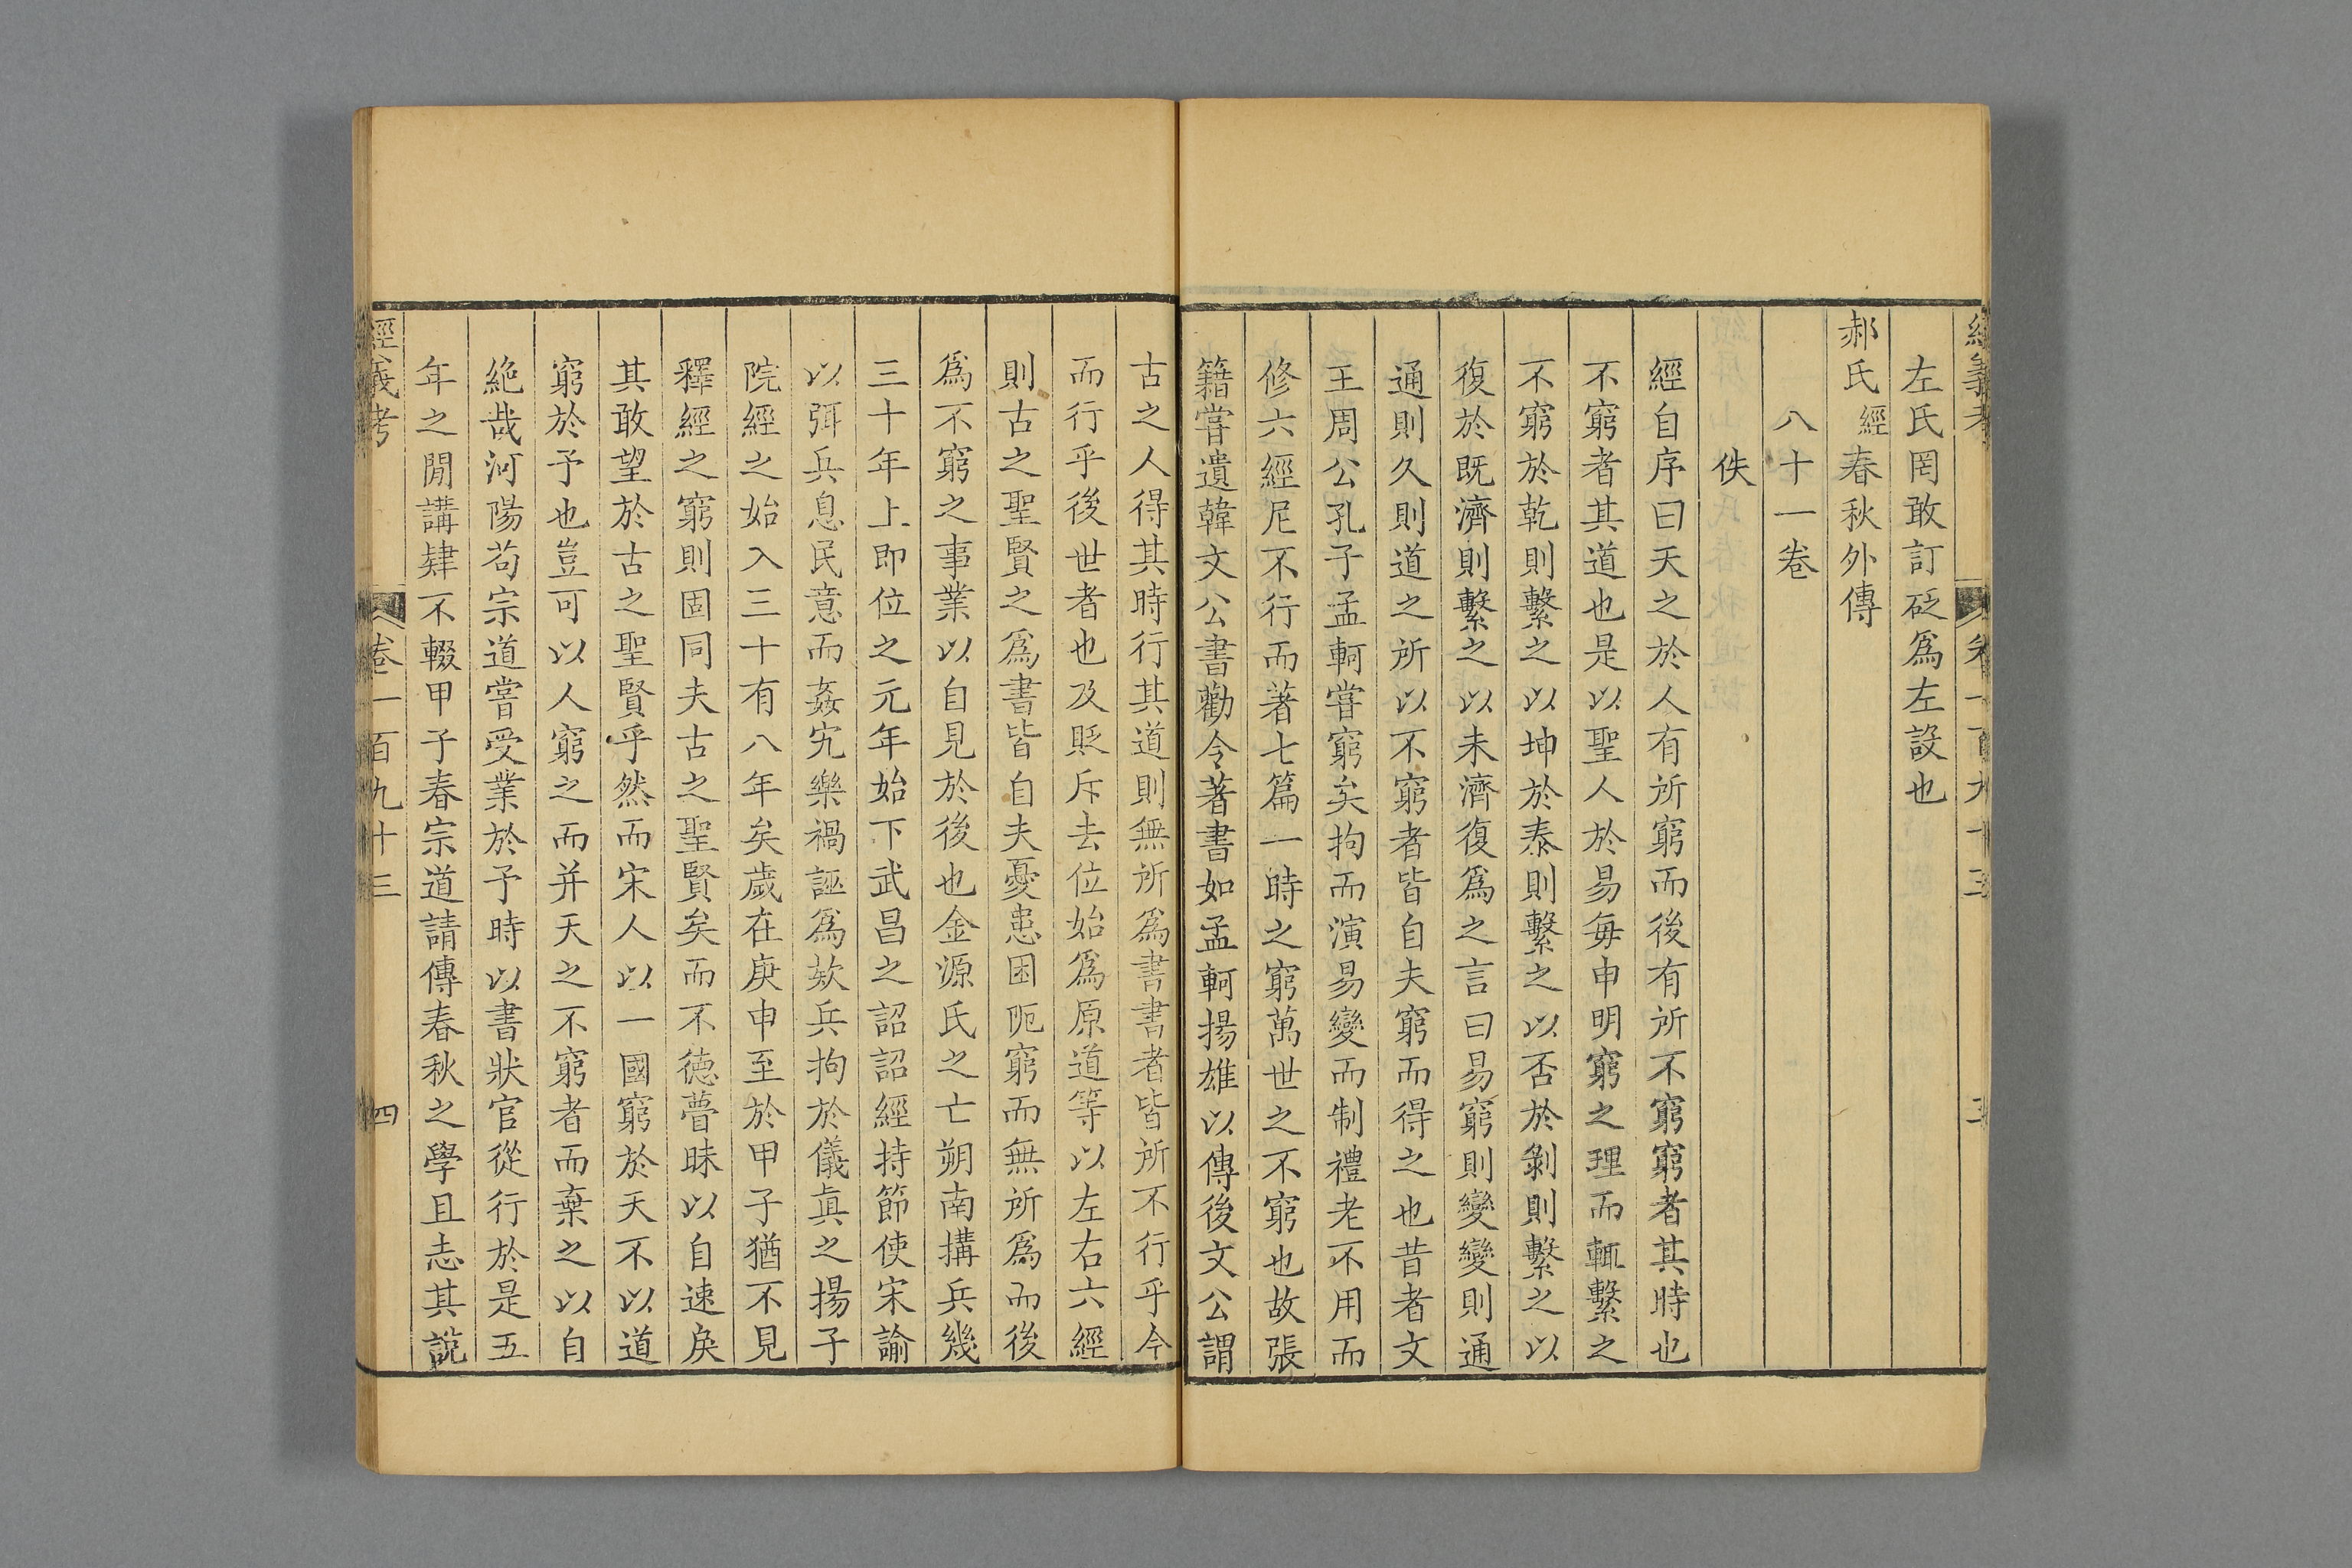 左氏罔敢訂砭爲左設也
郝氏經春秋外傳
八十一卷
佚
經自序曰天之於人有所窮而後有所不窮窮者其時也
不窮者其道也是以聖人於易每申明窮之理而輒繫之
不窮於乾則繫之以坤於泰則繫之以否於剝則繫之以
復於既濟則繫之以未濟復爲之言曰易窮則變變則通
通則久則道之所以不窮者皆自夫窮而得之也昔者文
王周公孔子孟軻嘗窮矣拘而演易變而制禮老不用而
修六經尼不行而著七篇一時之窮萬世之不窮也故張
籍嘗遺韓文公書勸令著書如孟軻揚雄以傳後文公謂
古之人得其時行其道則無所爲書書者皆所不行乎今
而行乎後世者也及貶斥去位始爲原道等以左右六經
則古之聖賢之爲書皆自夫憂患困阨窮而無所爲而後
爲不窮之事業以自見於後也金源氏之亡朔南搆兵幾
三十年上即位之元年始下武昌之詔詔經持節使宋諭
以弭兵息民意而姦宄樂禍誣爲欵兵拘於儀眞之揚子
院經之始入三十有八年矣歲在庚申至於甲子猶不見
釋經之窮則固同夫古之聖賢矣而不德瞢昧以自速戾
其敢望於古之聖賢乎然而宋人以一國窮於天不以道
窮於予也豈可以人窮之而并天之不窮者而棄之以自
絶哉河陽苟宗道嘗受業於予時以書狀官從行於是五
年之閒講肄不輟甲子春宗道請傳春秋之學且志其說
經義考
卷一百九十三
四